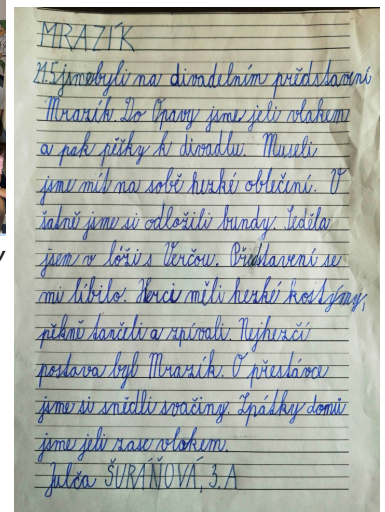 MRAZÍK
21.5 jsme byli na divadelním představení
Mrazík. Do Opavy jsme jeli vlakem
a pak pěšky k divadlu. Museli
jsme mít na sobě hezké oblečení. V
šatně jsme si odložili bundy. Seděla
jsem v lóži s Verčou. Představení se
mi líbilo. Herci měli hezké kostýmy,
pěkně tančeli a zpívali. Nejhezčí
postava byl Mrazík. O přestávce
jsme si snědli svačiny. Zpátky domů
jsme jeli zase vlakem.
Julča ŠURÁŇOVÁ, 3.A